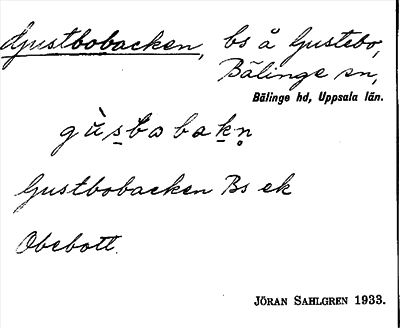 Gustbobacken, bs å Gustebo,
Bälinge sn,
Bälinge hd, Uppsala län.
gùsbobakn̥
Gustbobacken Bs ek
Obebott.
JÖRAN SAHLGREN 1933.